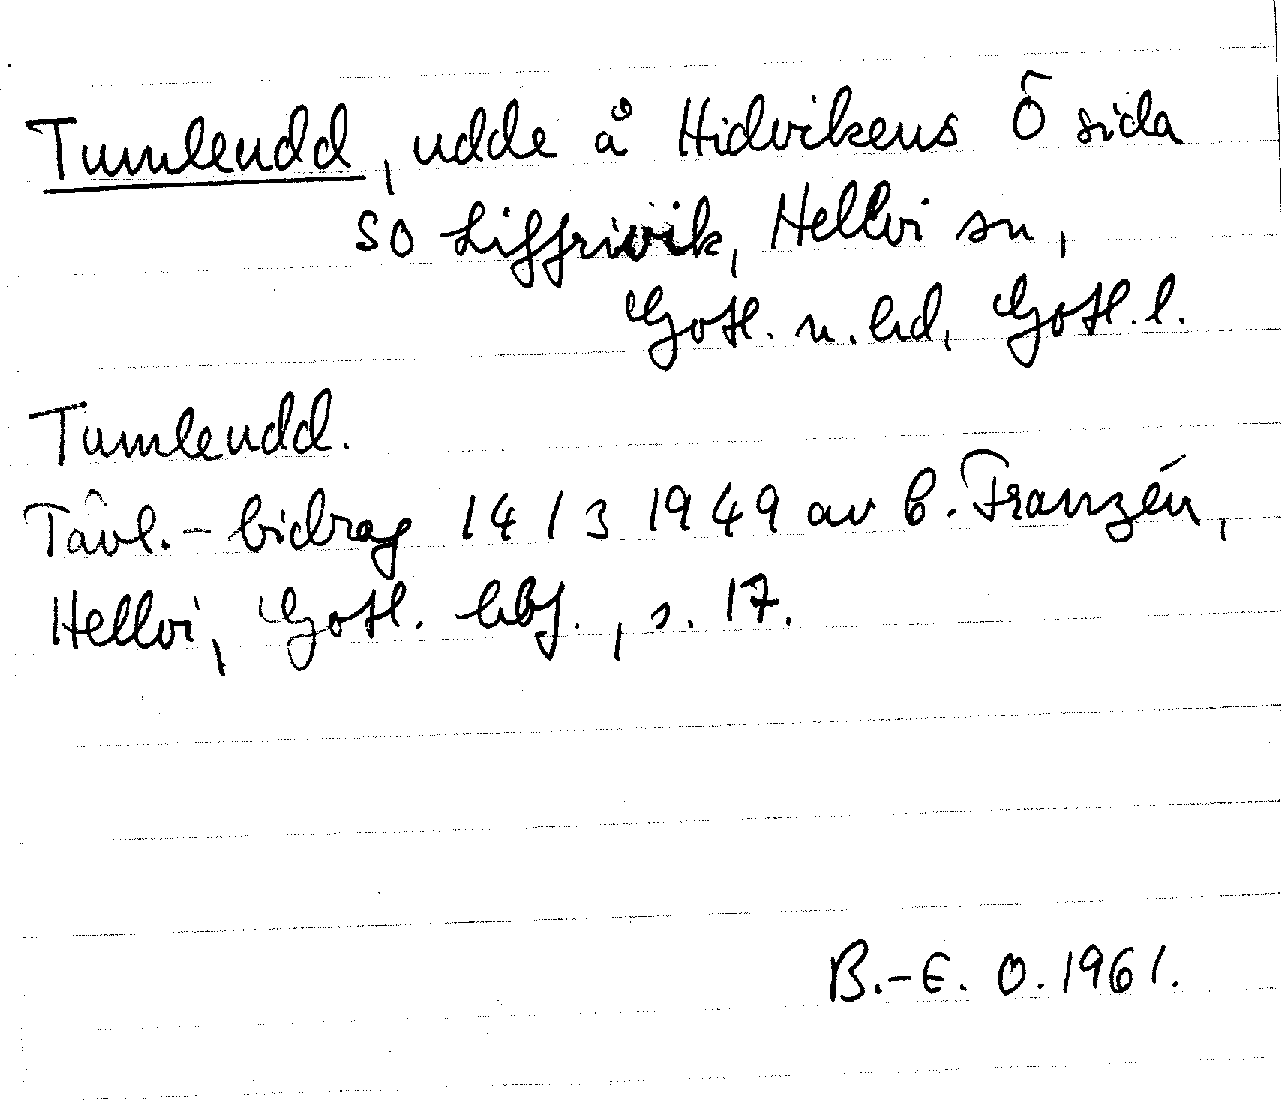 Tumleudd, udde å Hidvikens Ö sida
SO Liffrivik, Hellvi sn,
Gotl. n. hd, Gotl. l.
Tumleudd.
Tävl.-bidrag 14/3 1949 av B. Franzén,
Hellvi, Gotl. hbf., s. 17.
B.-E. O. 1961.